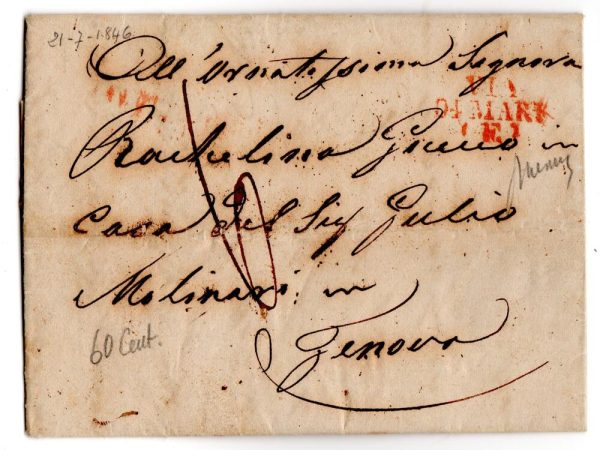 21-7-1846
All'Ornatissima Signora
VIA
DI MARE
(E)
Rachelina Greco in
Casa del Sig Gulio
Molinari in
60 Cent.
Genova